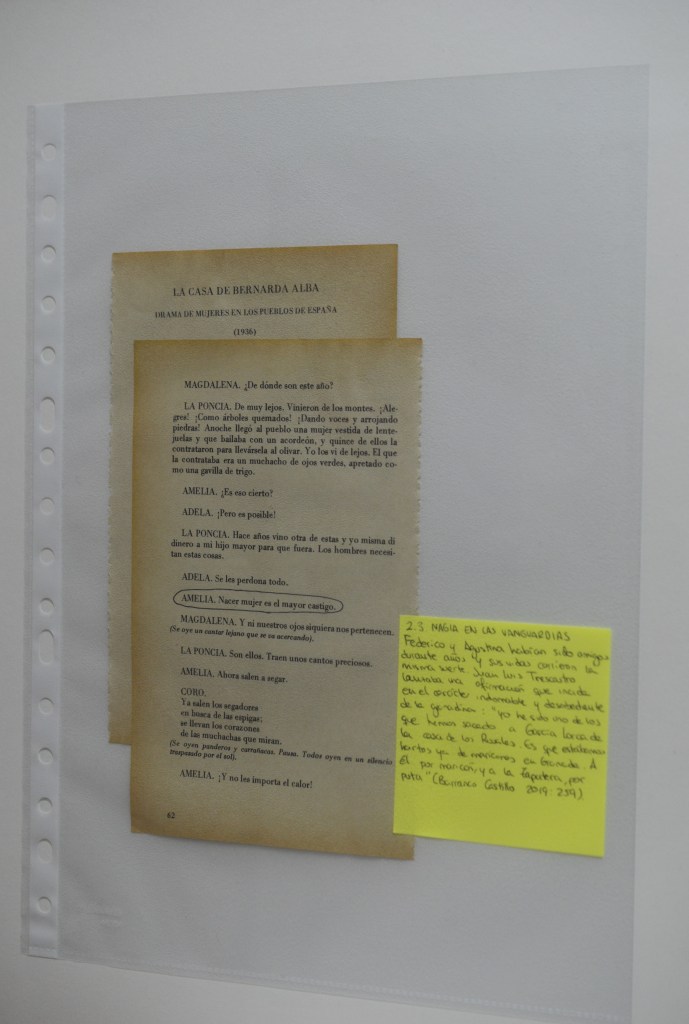 LA CASA DE BERNARDA ALBA
DRAMA DE MUJERES EN LOS PUEBLOS DE ESPAÑA
(1936)
MAGDALENA. ¿De dónde son este año?
LA PONCIA. De muy lejos. Vinieron de los montes. ¡Ale-
gres! ¡Como árboles quemados! ¡Dando voces y arrojando
piedras! Anoche llegó al pueblo una mujer vestida de lente-
juelas y que bailaba con un acordeón, y quince de ellos la
contrataron para llevársela al olivar. Yo los vi de lejos. El que
la contrataba era un muchacho de ojos verdes, apretado co-
mo una gavilla de trigo.
AMELIA. ¿Es eso cierto?
ADELA. ¡Pero es posible!
LA PONCIA. Hace años vino otra de estas y yo misma di
dinero a mi hijo mayor para que fuera. Los hombres necesi-
tan estas cosas.
ADELA. Se les perdona todo.
AMELIA. Nacer mujer es el mayor castigo.
MAGDALENA. Y ni nuestros ojos siquiera nos pertenecen.
(Se oye un cantar lejano que se va acercando).
LA PONCIA. Son ellos. Traen unos cantos preciosos.
AMELIA. Ahora salen a segar.
CORO.
Ya salen los segadores
en busca de las espigas;
se llevan los corazones
de las muchachas que miran.
(Se oyen panderos y carrañacas. Pausa. Todas oyen en un silencio
traspasado por el sol).
AMELIA. ¡Y no les importa el calor!
62
2.3 MAGIA EN LAS VANGUARDIAS
Federico y Agustina habían sido amigos
durante años y sus vidas corrieron la
misma suerte. Juan Luis Trescastro
una afirmación que incida
en el carácter indomable y desobediente
de la granadina: "Yo he sido uno de los
que hemos sacado a García Lorca de
la casa de los Rosales. Es que estábamos
hartos ya de maricones en Granada. A
él por maricón, y a la Zapatera, por
puta" (Barranco Castillo 2019: 259)